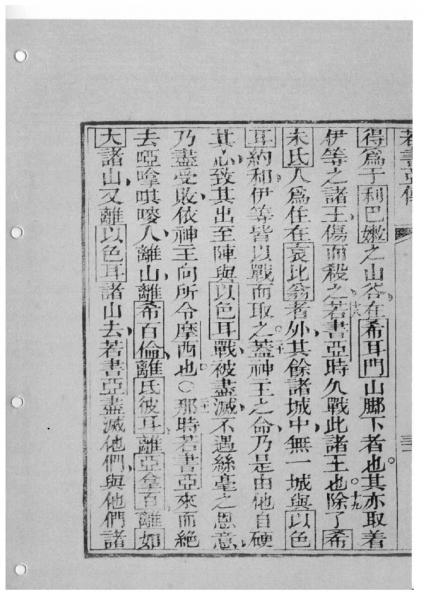 若書亞傳 三一
得爲于利巴嫩之山谷在希耳門山脚下者也其亦取着
伊等之諸王傷而殺之若書亞時久戰此諸王也十九除了希
未氏人爲住在哀比翁者外其餘諸城中無一城與以色
耳約和伊等皆以戰而取之蓋神王之命乃是由他自硬
其心致其出至陣與以色耳戰被盡滅不遇絲毫之恩意
乃盡受敗依神王向所令摩西也○那時若書亞來而絕
去啞唥唭嘜人離山離希百倫離氐彼耳離亞拿百離如
大諸山又離以色耳諸山去若書亞盡滅他們與他們諸